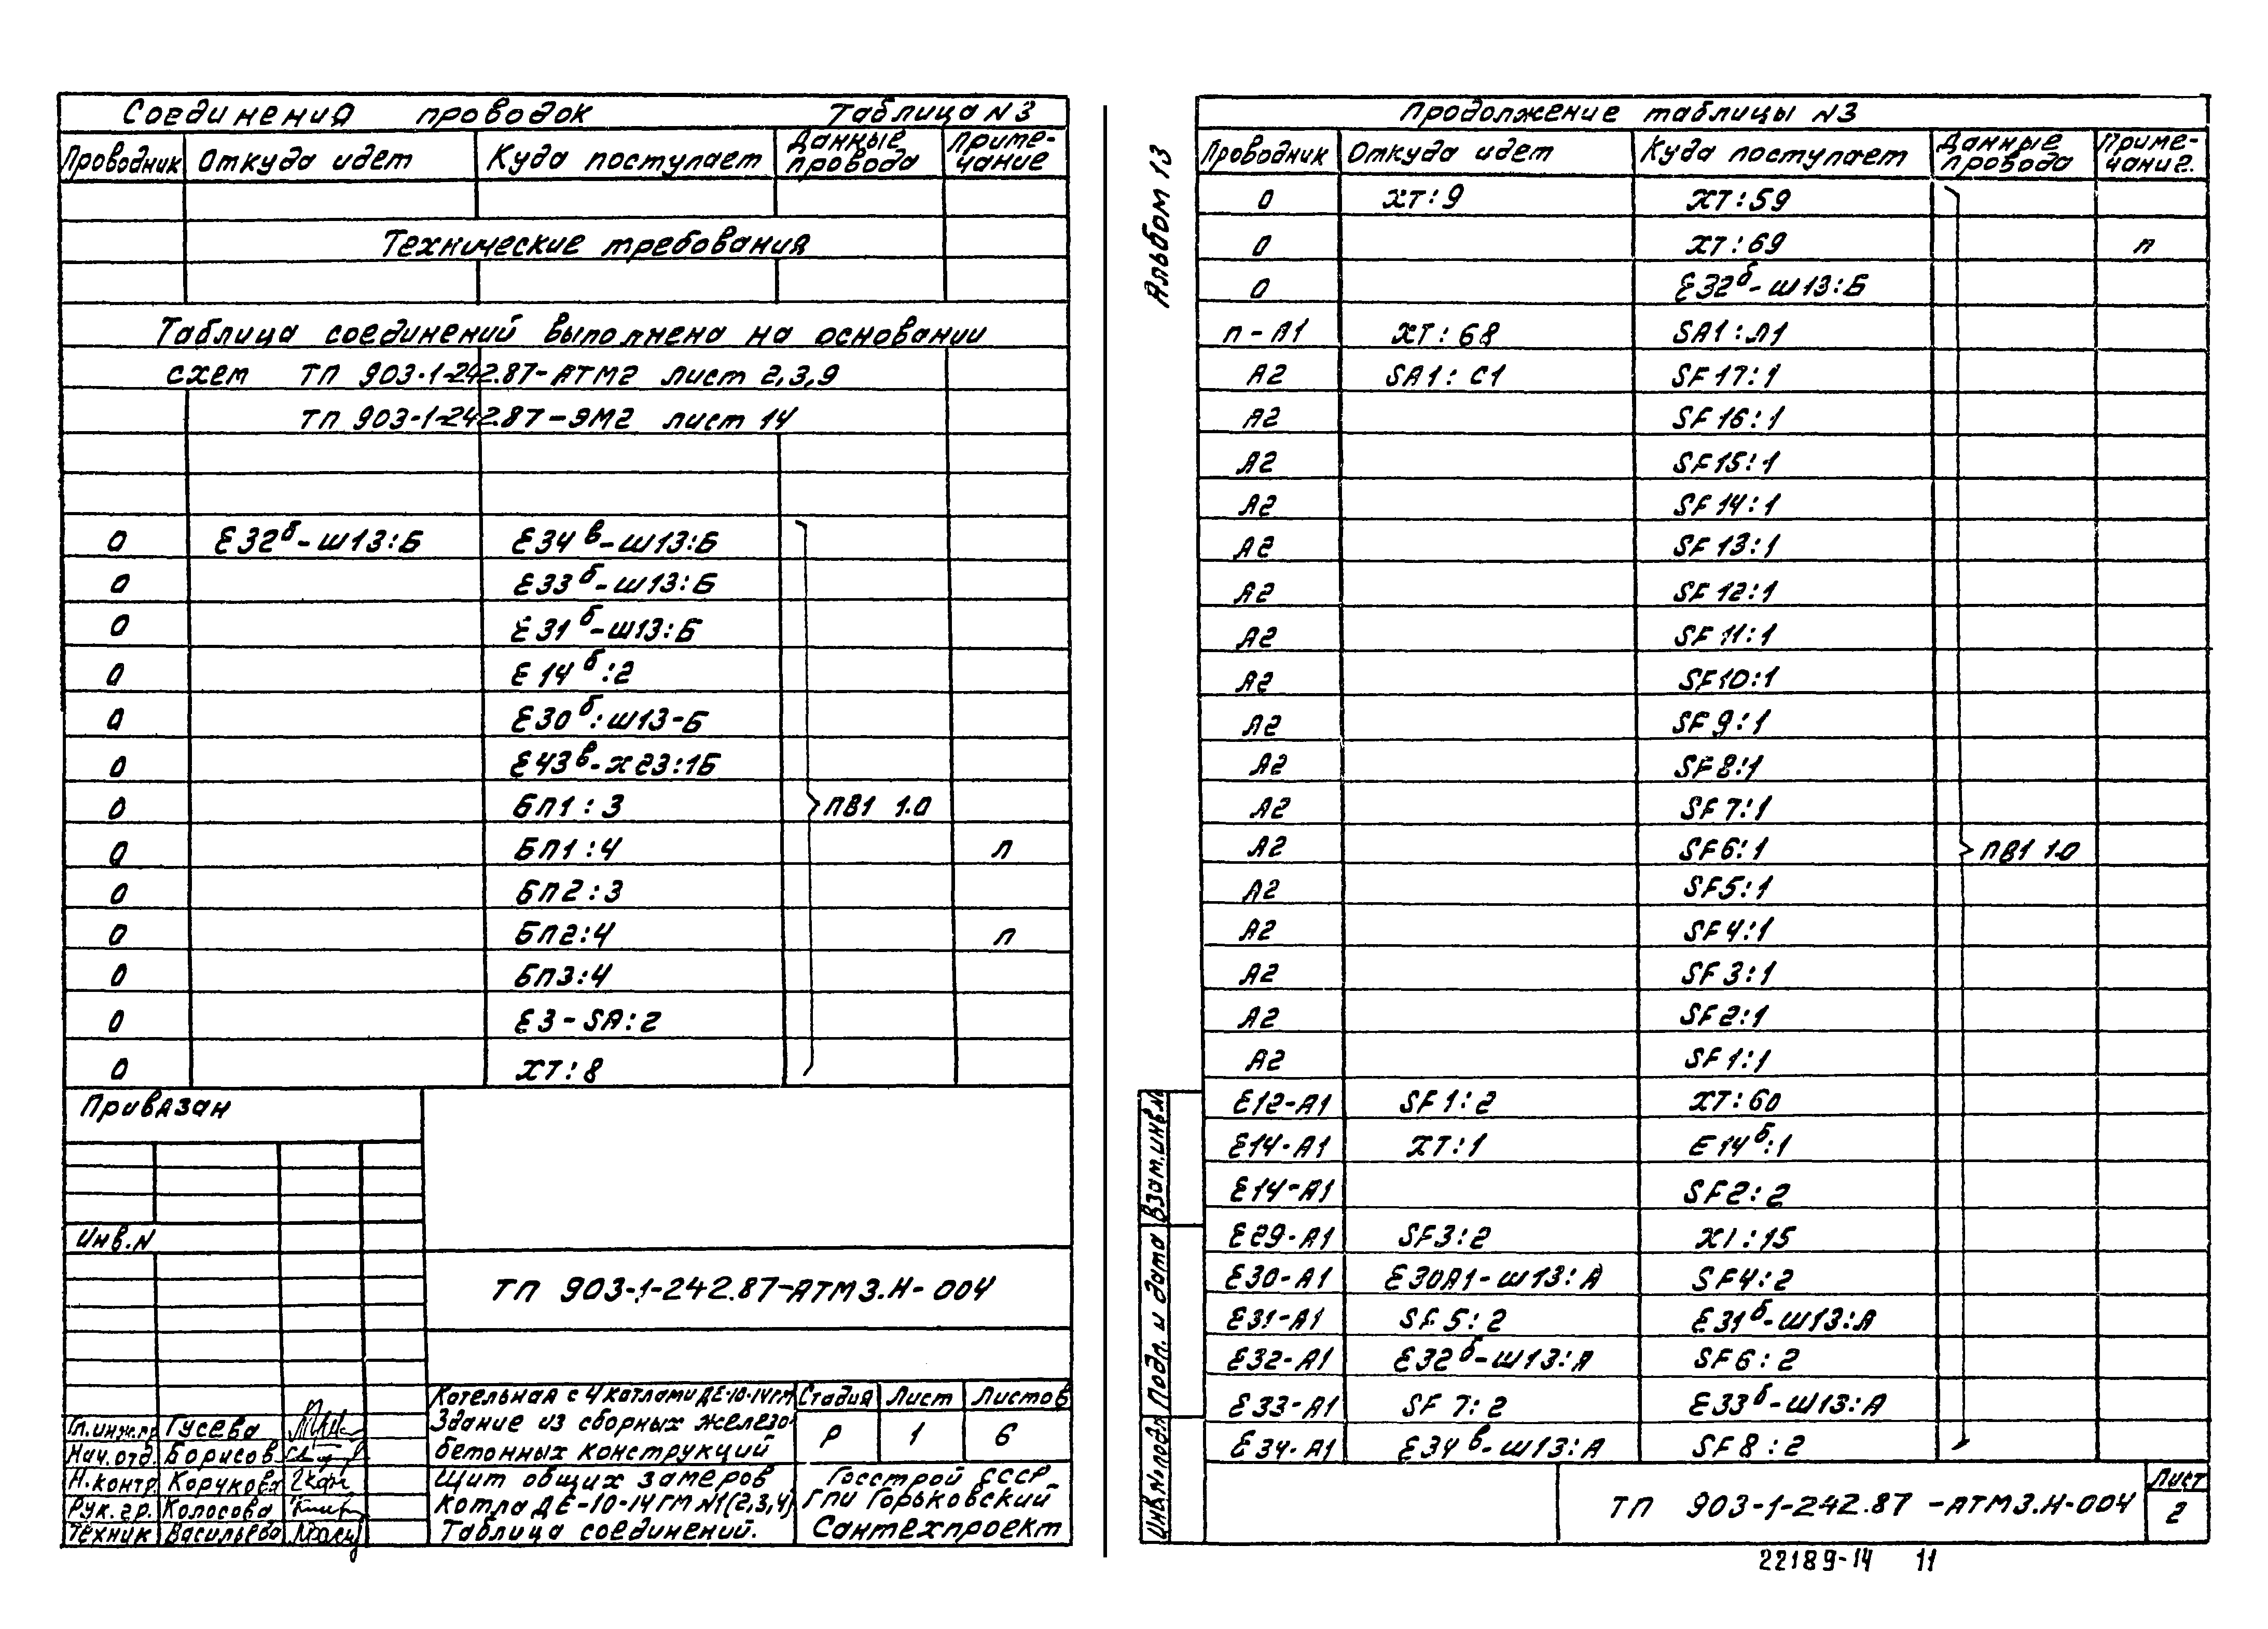 Соединения проводок Таблица N3
Проводник Откуда идет Куда поступает Данные провода Примечание
Технические требования
Таблица соединений выполнена на основании
схем ТП 903-1-242.87-АТМ2 лист 2,3,9
ТП 903-1-242.87-ЭМ2 лист 14
0 Е32б-Ш13:Б Е34в-Ш13:Б
0 Е33б-Ш13:Б
0 Е31б-Ш13:Б
0 Е14б:2
0 Е30б:Ш13-Б
0 Е43в-Х23:1Б
0 БП1:3 ПВ1 1.0
0 БП1:4 п
0 БП2:3
0 БП2:4 п
0 БП3:4
0 Е3-SA:2
0 ХТ:8
Привязан
Инв.N
ТП 903-1-242.87-АТМ3.Н-004
Котельная с 4 котлами ДЕ-10-14ГМ
Здание из сборных железо-
бетонных конструкций
Стадия Лист Листов
Р 1 6
Гл.инж.пр Гусева
Нач.отд. Борисов
Н.контр. Корчкова
Рук.гр. Колосова
Техник Васильева
Щит общих замеров
Котла ДЕ-10-14ГМ N1(2,3,4)
Таблица соединений.
Госстрой СССР
ГПИ Горьковский
Сантехпроект
Альбом 13
Продолжение таблицы N3
Проводник Откуда идет Куда поступает Данные провода Примечание.
0 ХТ:9 ХТ:59
0 ХТ:69 п
0 Е32б-Ш13:Б
п-А1 ХТ:68 SA1:Л1
А2 SA1:С1 SF17:1
А2 SF16:1
А2 SF15:1
А2 SF14:1
А2 SF13:1
А2 SF12:1
А2 SF11:1
А2 SF10:1
А2 SF9:1
А2 SF8:1
А2 SF7:1
А2 SF6:1 ПВ1 1.0
А2 SF5:1
А2 SF4:1
А2 SF3:1
А2 SF2:1
А2 SF1:1
Е12-А1 SF1:2 ХТ:60
Е14-А1 ХТ:1 Е14б:1
Е14-А1 SF2:2
Е29-А1 SF3:2 Х1:15
Е30-А1 Е30А1-Ш13:А SF4:2
Е31-А1 SF5:2 Е31б-Ш13:А
Е32-А1 Е32б-Ш13:А SF6:2
Е33-А1 SF7:2 Е33б-Ш13:А
Е34-А1 Е34в-Ш13:А SF8:2
Взам.инв.N
Подп. и дата
Инв.Nподл
ТП 903-1-242.87-АТМ3.Н-004
Лист
2
22189-14 11